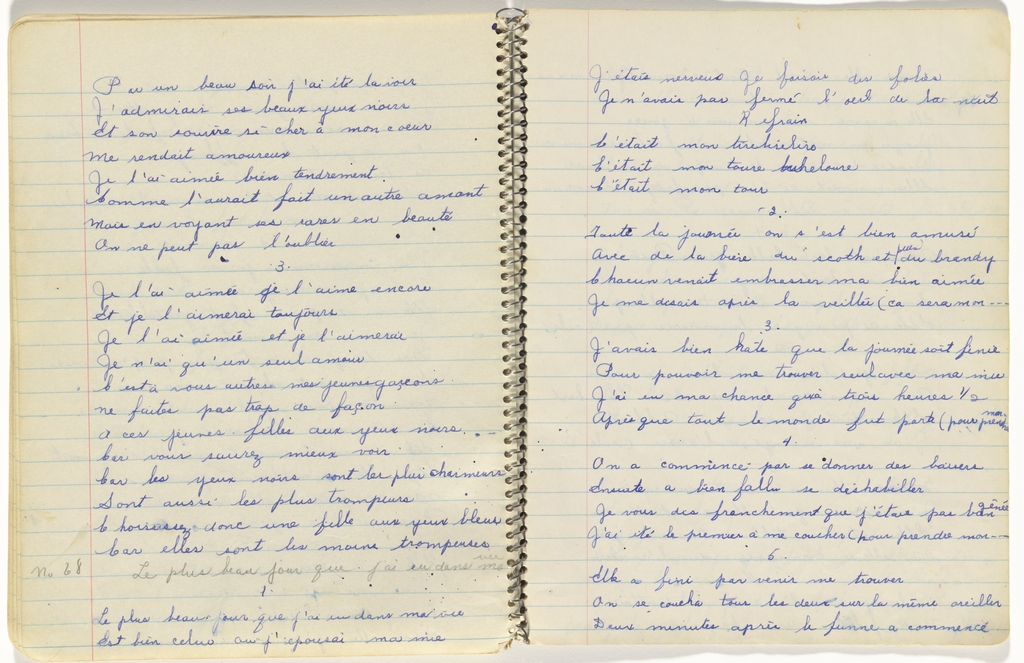 Par un beau soir j'ai été la voir
J'admirais ses beaux yeux noirs
Et son sourire si cher à mon coeur
Me rendait amoureux
Je l'ai aimée bien tendrement.
Comme l'aurait fait un autre amant
Mais en voyant ses rares en beauté
On ne peut pas l'oublier
3.
Je l'ai aimée je l'aime encore
Et je l'aimerai toujours
Je l'ai aimée et je l'aimerai
Je n'ai qu'un seul amour
C'est à vous autres mes jeunes garçons.
ne faites pas trop de façon
a ces jeunes filles aux yeux noirs.
Car vous saurez mieux voir
Car les yeux noirs sont les plus charmeurs
Sont aussi les plus trompeurs
Choisissez donc une fille aux yeux bleus
Car elles sont les moins trompeuses
No 68 Le plus beau jour que j'ai eu dans ma vie
1.
Le plus beau jour que j'ai eu dans ma vie
Est bien celui où j'épousai ma mie
J'étais nerveux Je faisais des folies
Je n'avais pas fermé l'oeil de la nuit
Refrain
C'était mon tirelireliro
C'était mon toure
C'était mon tour
-2.
Toute la journée on s'est bien amusé
Avec de la bière du scoth et du brandy
Chacun venait embrasser ma bien aimée
Je me disais après la veillée (ça sera mon ---
3.
J'avais bien hâte que la journée soit finie
Pour pouvoir me trouver seul avec ma mie
J'ai eu ma chance qu'à trois heures 1/2
Après que tout le monde fut parti (pour prendre mon
4.
On a commencé par se donner des baisers
Ensuite a bien fallu se déshabiller
Je vous dis franchement que j'étais pas bien gênée
J'ai été le premier à me coucher (pour prendre mon ---
5.
Elle a fini par venir me trouver
On se coucha tous les deux sur la même oreiller
Deux minutes après le funne a commencé